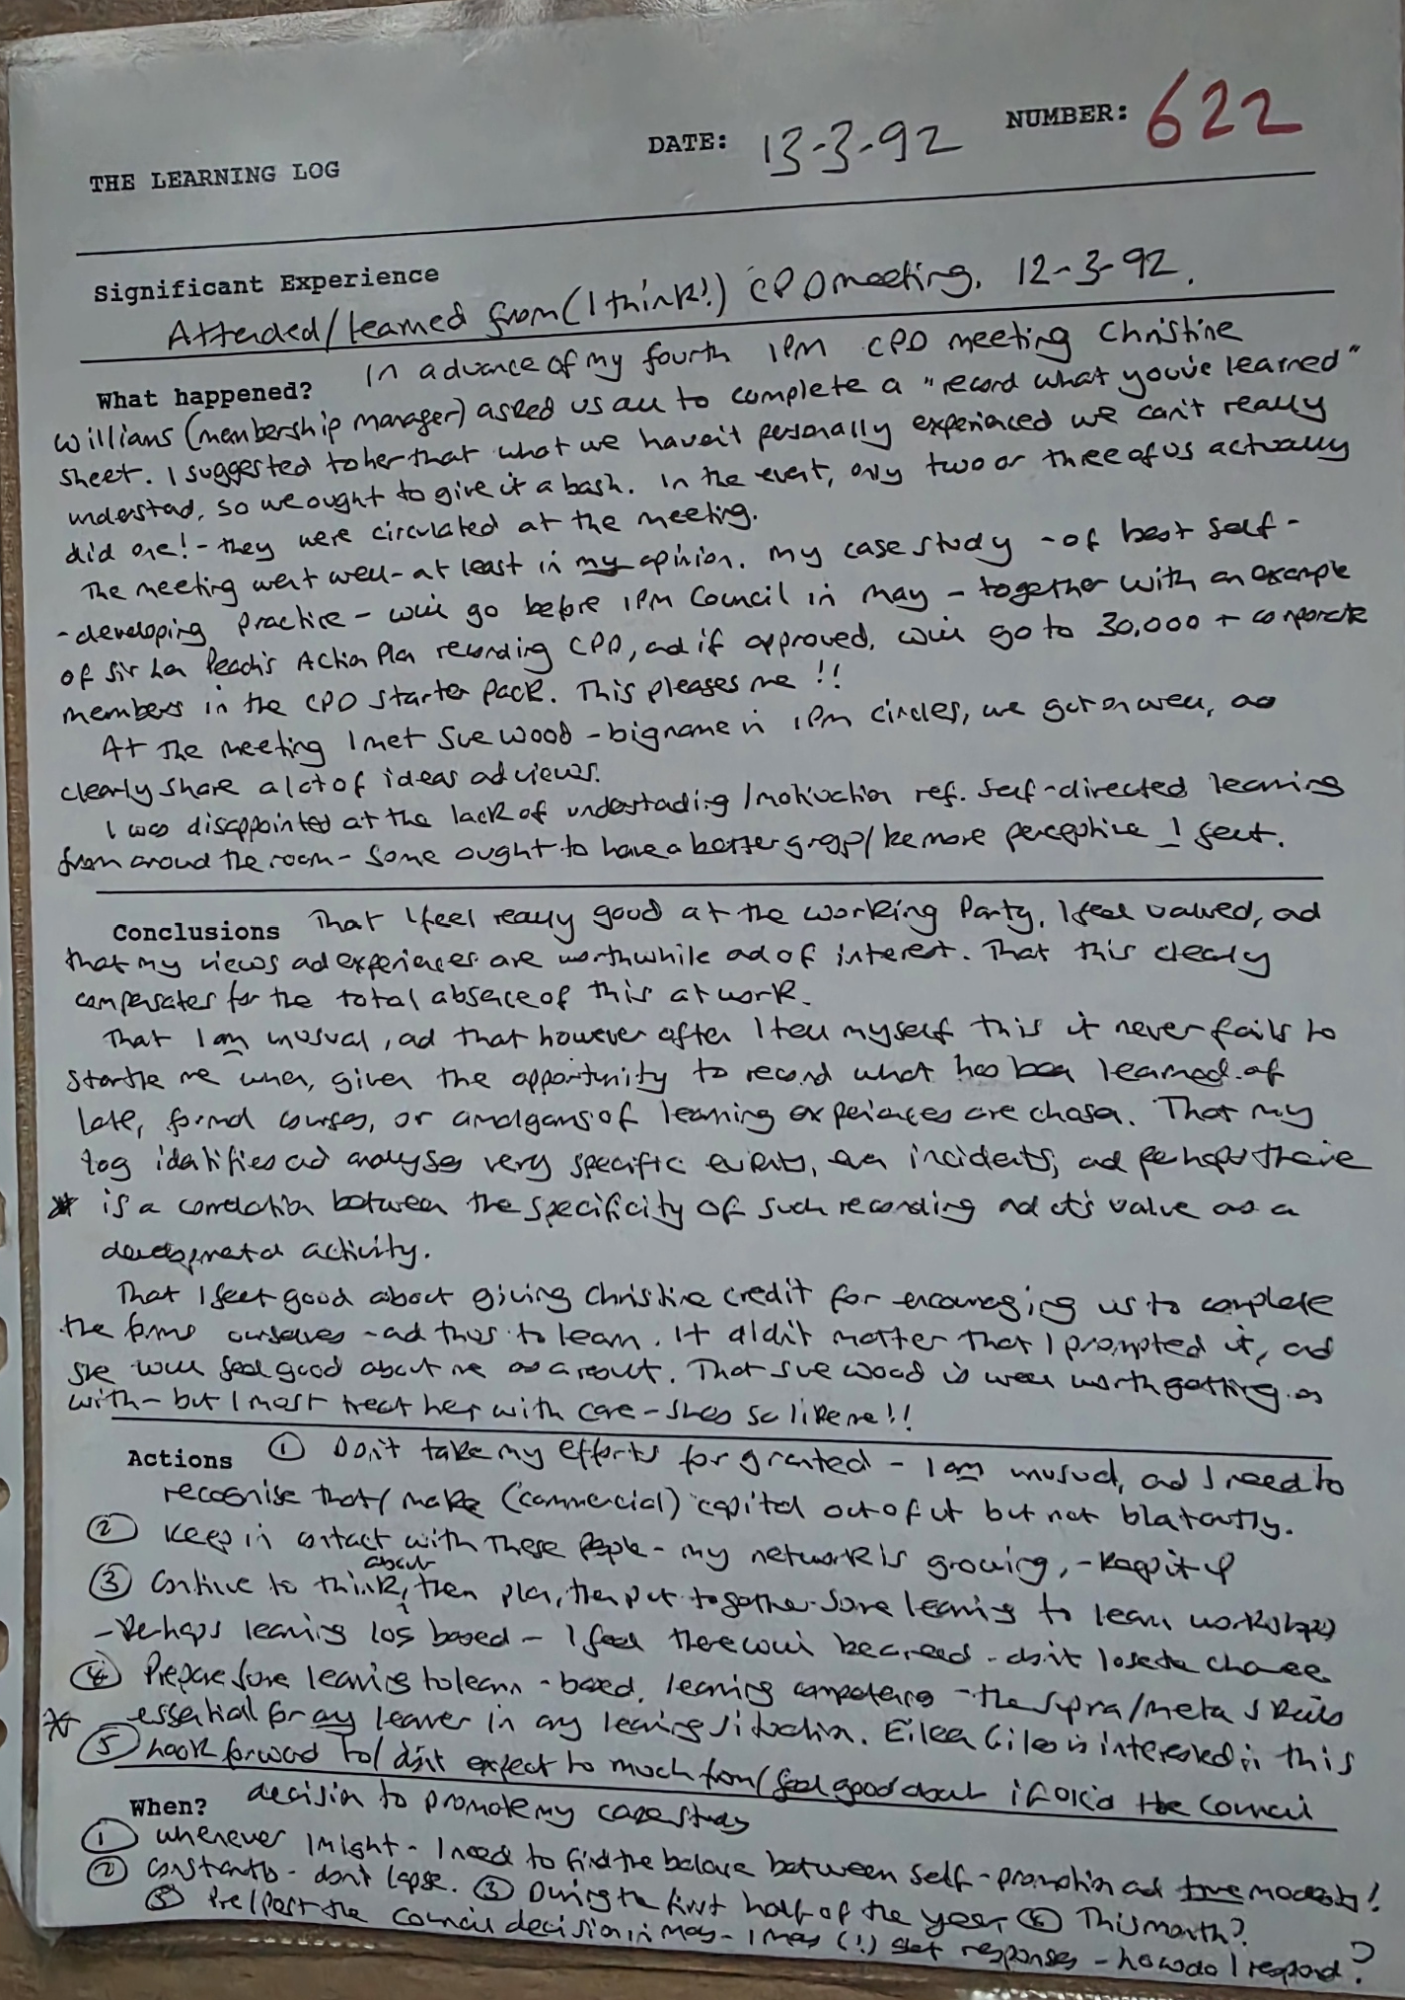 THE LEARNING LOG DATE: 13-3-92 NUMBER: 622
Significant Experience
Attended/learned from (I think!) CPD meeting. 12-3-92.
What happened? In advance of my fourth IPM CPD meeting Christine
Williams (membership manager) asked us all to complete a "record what you've learned"
sheet. I suggested to her that what we haven't personally experienced we can't really
understand, so we ought to give it a bash. In the event, only two or three of us actually
did one! - they were circulated at the meeting.
The meeting went well - at least in my opinion. My case study - of best self-
-developing practice - will go before IPM Council in May - together with an example
of Sir Len Peach's Action Plan recording CPD, and if approved, will go to 30,000 + corporate
members in the CPD starter pack. This pleases me!!
At the meeting I met Sue Wood - big name in IPM circles, we got on well, and
clearly share a lot of ideas and views.
I was disappointed at the lack of understanding/motivation ref. self-directed learning
from around the room - some ought to have a better grasp/be more perceptive I felt.
Conclusions That I feel really good at the working party. I feel valued, and
that my views and experiences are worthwhile and of interest. That this clearly
compensates for the total absence of this at work.
That I am unusual, and that however often I tell myself this it never fails to
startle me when, given the opportunity to record what has been learned of
late, formal courses, or amalgams of learning experiences are chosen. That my
log identifies and analyses very specific events, even incidents, and perhaps there
* is a correlation between the specificity of such recording and it's value as a
developmental activity.
That I felt good about giving Christine credit for encouraging us to complete
the forms ourselves - and thus to learn. It didn't matter that I prompted it, and
she will feel good about me as a result. That Sue Wood is well worth getting on
with - but I must treat her with care - she's so like me!!
Actions ① Don't take my efforts for granted - I am unusual, and I need to
recognise that/make (commercial) capital out of it but not blatantly.
② Keep in contact with these people - my network is growing, - keep it up
③ Continue to think about, then plan, then put together some learning to learn workshops
- Perhaps learning log based - I feel there will be a need - don't lose the chance
④ Prepare some learning to learn - based, learning competencies - the supra/meta skills
* essential for any learner in any learning situation. Eileen Giles is interested in this
⑤ Look forward to/don't expect to much from/feel good about if OK'd the Council
When? decision to promote my case study
① Whenever I might - I need to find the balance between self-promotion and true modesty!
② Constantly - don't lapse. ③ During the first half of the year ④ This month?
⑤ Pre/post the Council decision in May - I may (!) get responses - how do I respond?